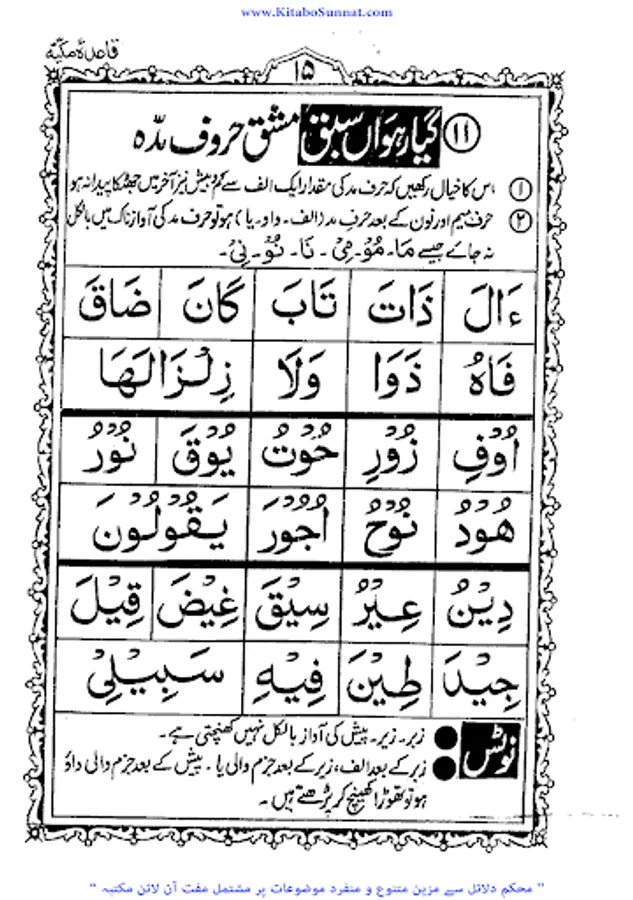 www.KitaboSunnat.com
قاعدہ مکیہ
١٥
١١ گیارہواں سبق مشق حروف مدّہ
١ اس کا خیال رکھیں کہ حرف مد کی مقدار ایک الف سے کم و بیش نیز آخر میں جھٹکا پیدا نہ ہو
٢ حرف میم اور نون کے بعد حرف مد (الف۔ واو۔ یا) ہو تو حرف مد کی آواز ناک میں بالکل
نہ جائے جیسے مَا۔ مُوْ۔ مِیْ۔ نَا۔ نُوْ۔ نِیْ۔
ءَالَ ذَاتَ تَابَ كَانَ ضَاقَ
فَاهُ ذَوَا وَلَا زِلْزَالَهَا
اُوْفِ زُوْرِ حُوْتُ يُوْقَ نُوْرُ
هُوْدُ نُوْحُ اُجُوْرَ يَقُوْلُوْنَ
دِيْنُ عِيْرُ سِيْقَ غِيْضَ قِيْلَ
جِيْدَ طِيْنَ فِيْهِ سَبِيْلِيْ
نوٹس
زبر۔ زیر۔ پیش کی آواز بالکل نہیں کھنچتی ہے۔
زبر کے بعد الف، زیر کے بعد جزم والی یا۔ پیش کے بعد جزم والی واؤ
ہو تو تھوڑا کھینچ کر پڑھتے ہیں۔
" محکم دلائل سے مزین متنوع و منفرد موضوعات پر مشتمل مفت آن لائن مکتبہ "